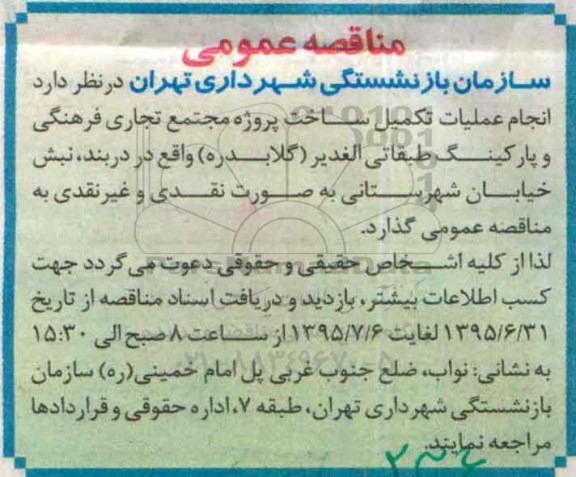 مناقصه عمومی
سازمان بازنشستگی شهرداری تهران درنظر دارد
انجام عملیات تکمیل ساخت پروژه مجتمع تجاری فرهنگی
و پارکینگ طبقاتی الغدیر (گلابدره) واقع در دربند، نبش
خیابان شهرستانی به صورت نقدی و غیرنقدی به
مناقصه عمومی گذارد.
لذا از کلیه اشخاص حقیقی و حقوقی دعوت می گردد جهت
کسب اطلاعات بیشتر، بازدید و دریافت اسناد مناقصه از تاریخ
۱۳۹۵/۶/۳۱ لغایت ۱۳۹۵/۷/۶ از ساعت ۸ صبح الی ۱۵:۳۰
به نشانی: نواب، ضلع جنوب غربی پل امام خمینی(ره) سازمان
بازنشستگی شهرداری تهران، طبقه ۷، اداره حقوقی و قراردادها
مراجعه نمایند.